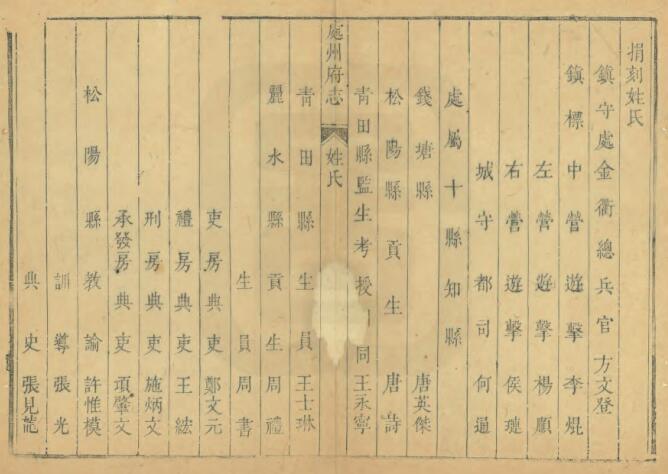 捐刻姓氏
鎮守處金衢總兵官方文登
鎮標中營遊擊李焜
左營遊擊楊順
右營遊擊侯璉
城守都司何通
處屬十縣知縣
錢塘縣唐英傑
松陽縣貢生唐詩
青田縣監生考授同王永寧
處州府志 姓氏
青田縣生員王士琳
麗水縣貢生周禮
生員周書
吏房典吏鄭文元
禮房典吏王紘
刑房典吏施炳文
承發房典吏項肇文
松陽縣教諭許惟模
訓導張光
典史張見龍